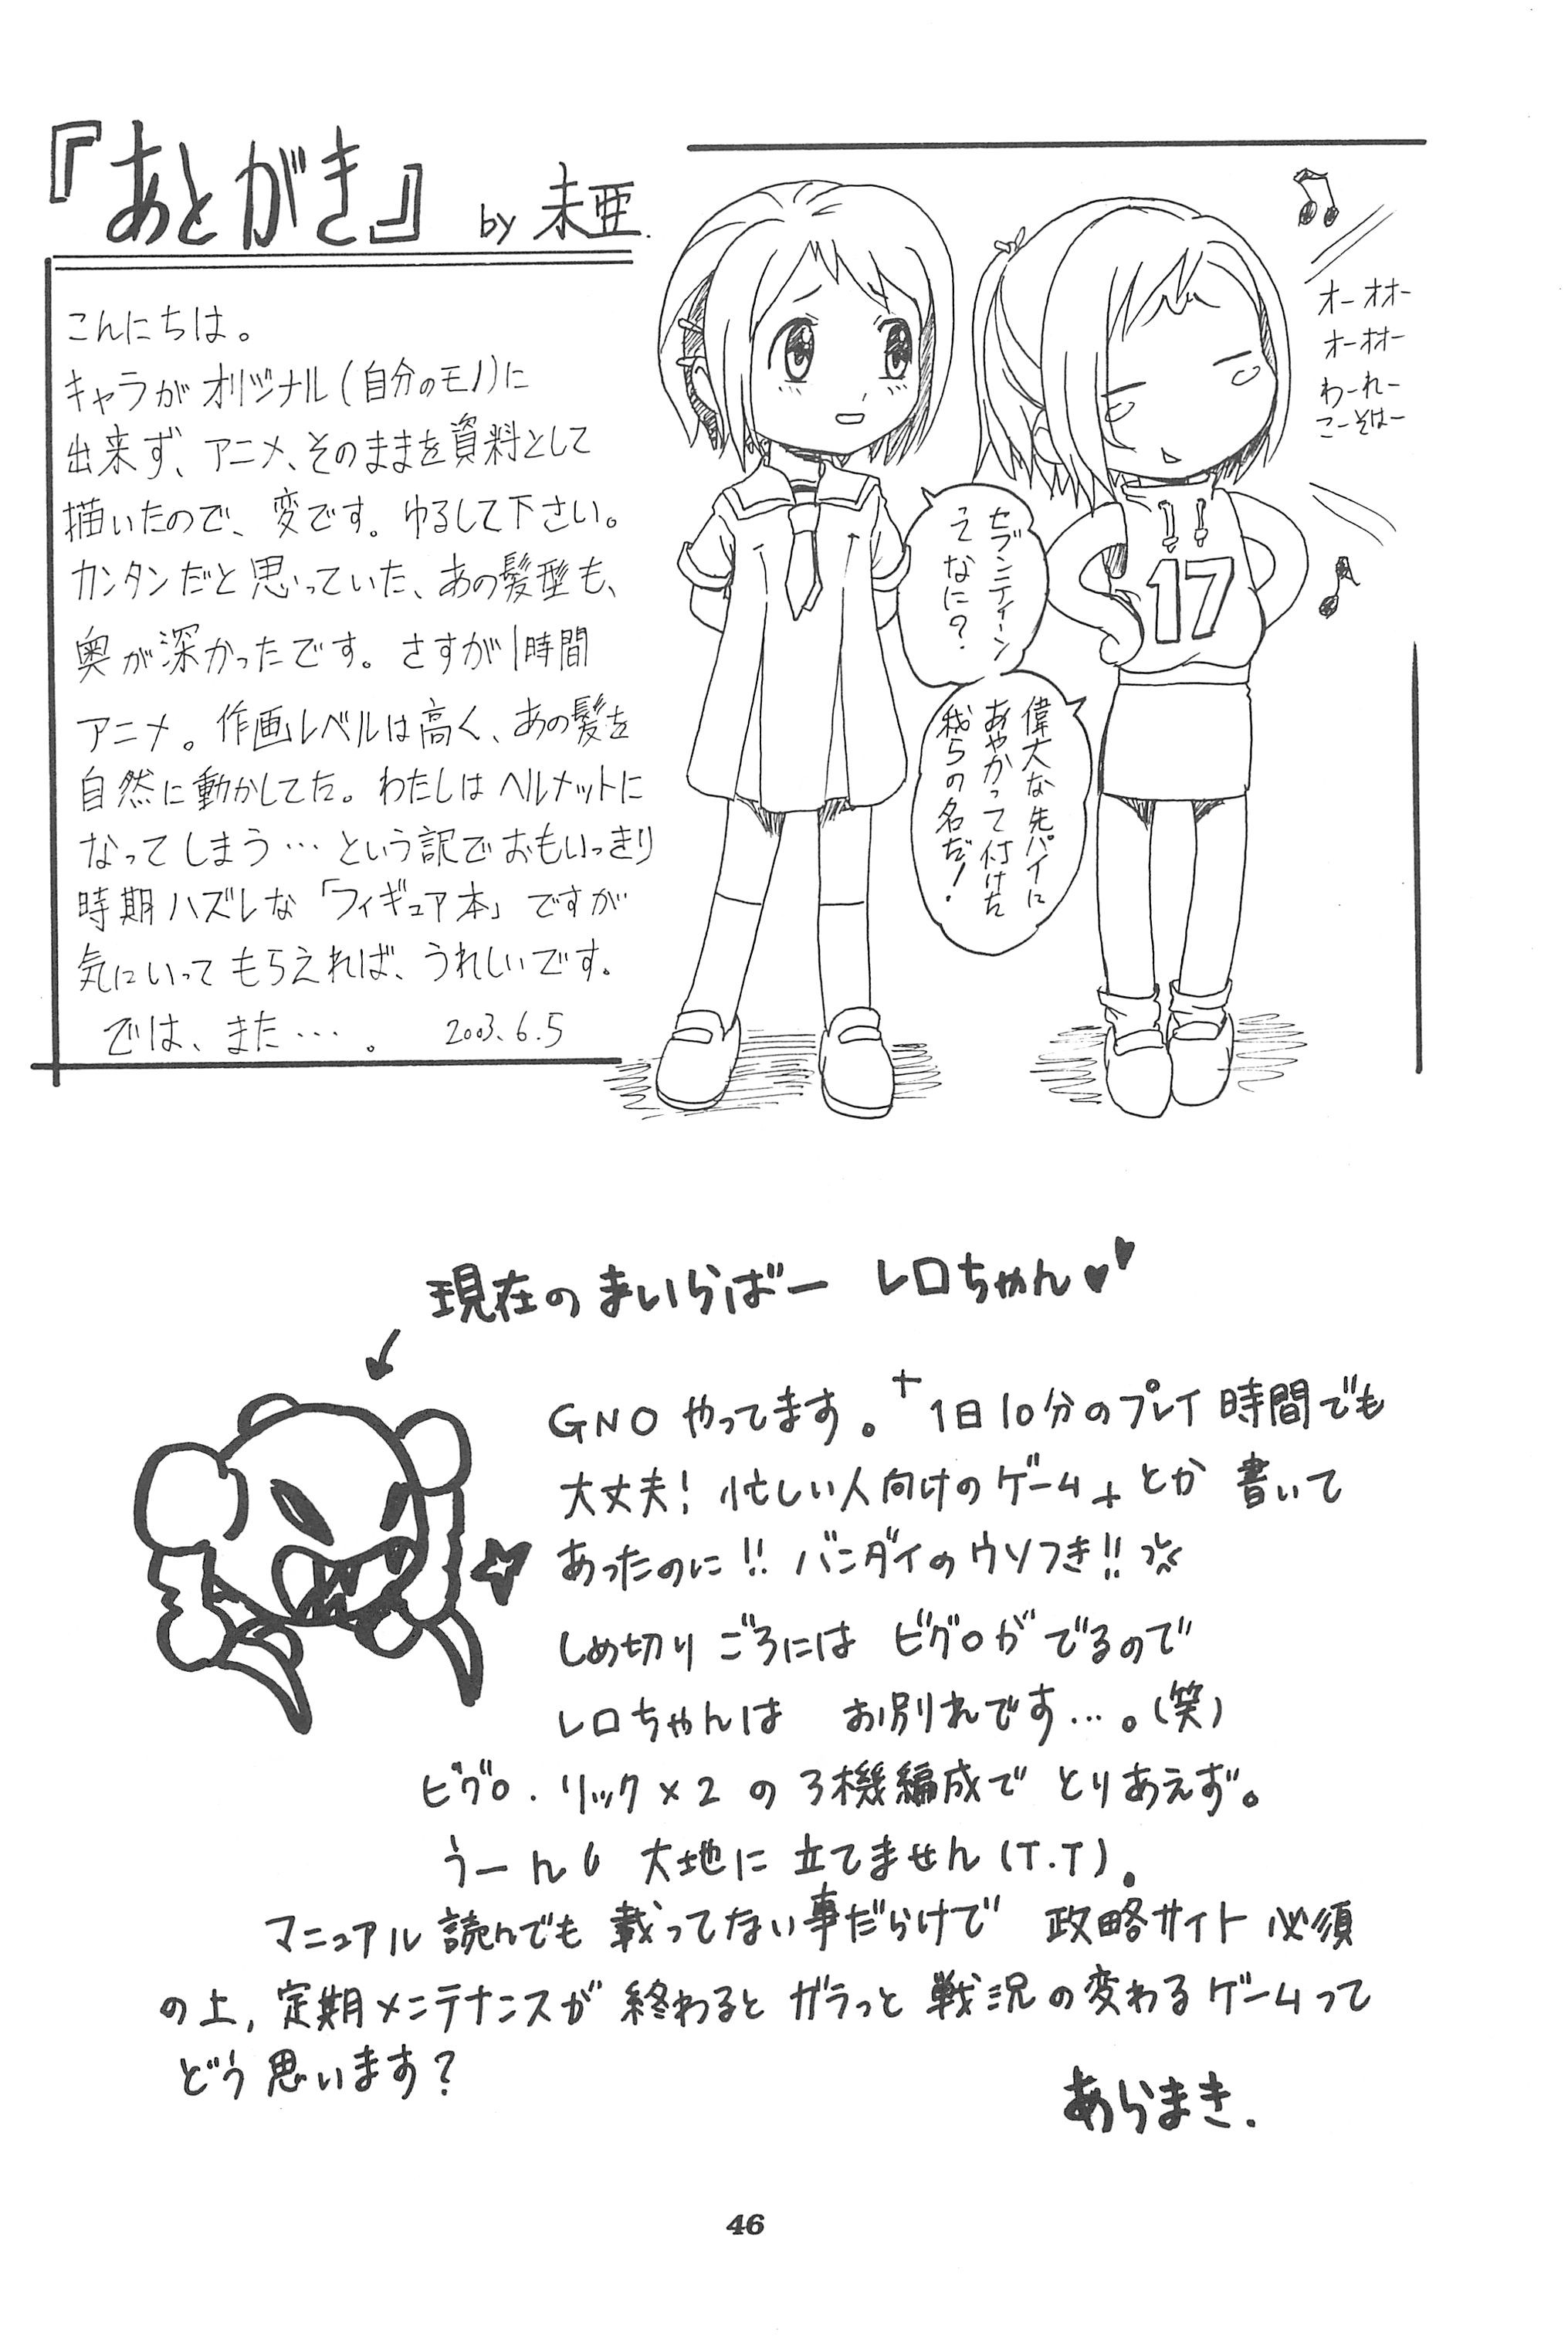 『あとがき』 by 未亜.
こんにちは。
キャラがオリジナル(自分のモノ)に
出来ず、アニメ、そのままを資料として
描いたので、変です。ゆるして下さい。
カンタンだと思っていた、あの髪型も、
奥が深かったです。さすが1時間
アニメ。作画レベルは高く、あの髪を
自然に動かしてた。わたしはヘルメットに
なってしまう…という訳でおもいっきり
時期ハズレな「フィギュア本」ですが
気にいってもらえれば、うれしいです。
では、また…。 2003.6.5
オーオオー
オーオオー
わーれー
こーそはー
セブンティーン
って なに?
17
偉大な先パイに
あやかって付けた
我らの名だ!
現在のまいらばー レロちゃん♥♥
GNOやってます。+1日10分のプレイ時間でも
大丈夫! 忙しい人向けのゲーム+とか書いて
あったのに!! バンダイのウソつき!!
しめ切りごろには ビグロがでるので
レロちゃんは お別れです…。(笑)
ビグロ.リック×2の3機編成でとりあえず。
うーん 大地に立てません(T.T).
マニュアル読んでも載ってない事だらけで 政略サイト必須
の上,定期メンテナンスが終わるとガラっと戦況の変わるゲームって
どう思います?
あらまき.
46